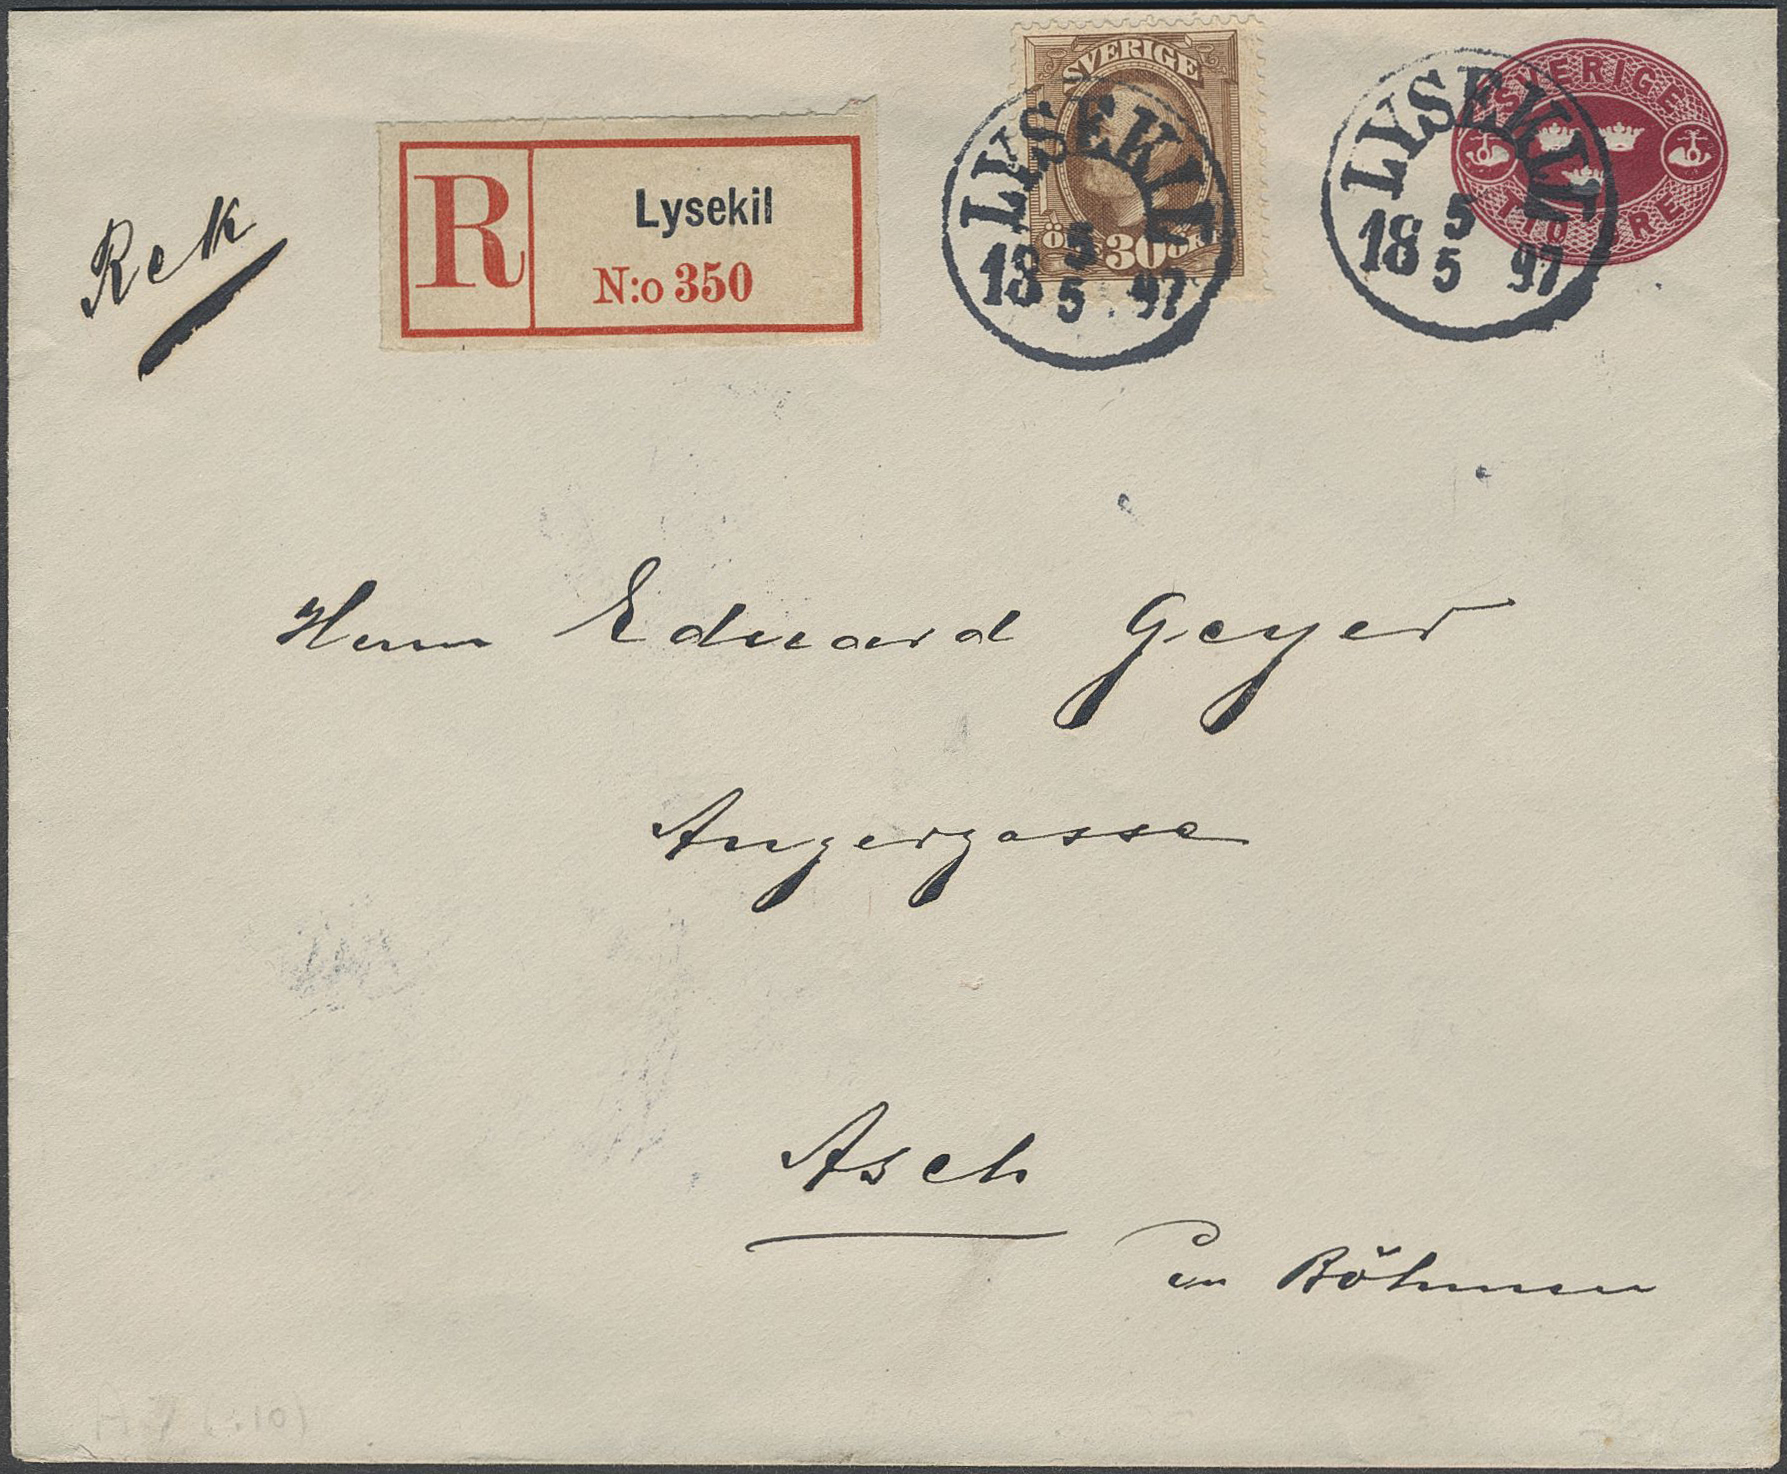 Rek
R
Lysekil
N:o 350
SVERIGE
ÖRE 30 ÖRE
LYSEKIL
5
18 97
5
SVERIGE
TIO ÖRE
LYSEKIL
5
18 97
5
Herrn Eduard Geyer
Angergasse
Asch
in Böhmen